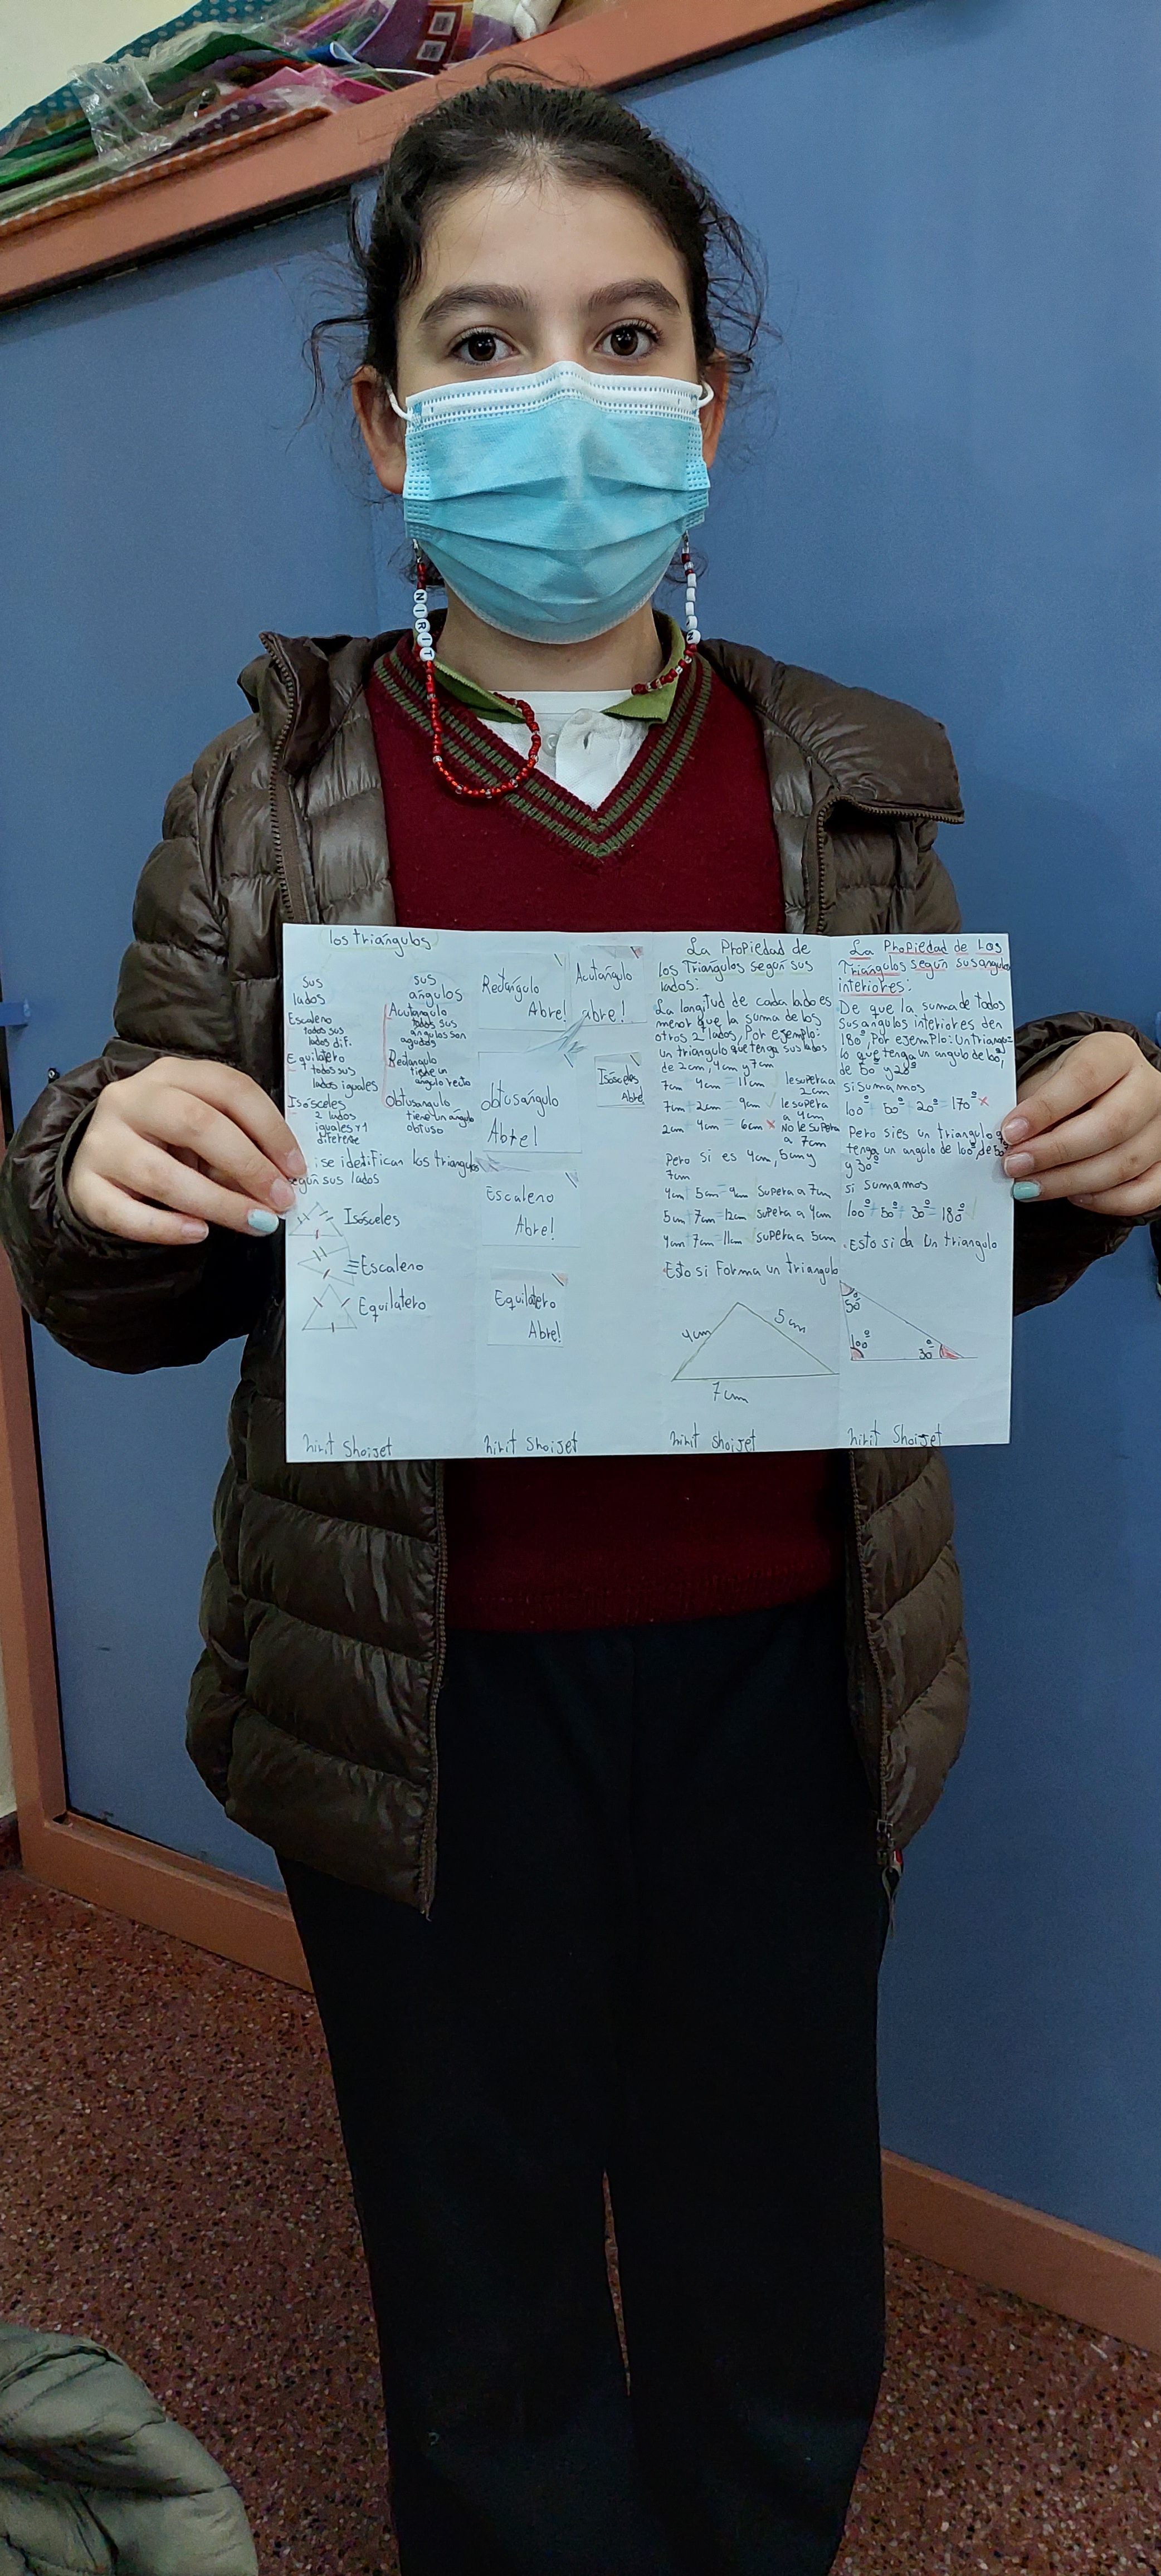 NIRIT
N
los triángulos
sus
lados
Escaleno
todos sus
lados dif.
Equilátero
todos sus
lados iguales
Isósceles
2 lados
iguales y 1
diferene
sus
angulos
Acutangulo
todos sus
angulos son
agudos
Rectangulo
tiene un
angulo recto
Obtusangulo
tiene un angulo
obtuso
se identifican los triangulos
según sus lados
Isósceles
Escaleno
Equilatero
Nirit Shoijet
Rectángulo
Abre!
Acutángulo
abre!
obtusángulo
Abre!
Isósceles
Abre!
Escaleno
Abre!
Equilatero
Abre!
Nirit Shoijet
La Propiedad de
los Triángulos según sus
lados:
La longitud de cada lado es
menor que la suma de los
otros 2 lados, Por ejemplo:
un triangulo que tenga sus lados
de 2cm, 4cm y 7cm
7cm + 4cm = 11cm le supera a
2cm
7cm + 2cm = 9cm ✓ le supera
a 4cm
2cm + 4cm = 6cm x No le supera
a 7cm
Pero si es 4cm, 5cm y
7cm
4cm + 5cm = 9cm supera a 7cm
5cm + 7cm = 12cm supera a 4cm
4cm + 7cm = 11cm supera a 5cm
Esto si Forma un triangulo
4cm
5cm
7cm
Nirit Shoijet
La Propiedad de Los
Triángulos según sus angulos
interiores:
De que la suma de todos
sus angulos interiores den
180º, Por ejemplo: Un triangu-
lo que tenga un angulo de 100º,
de 50º y 20º
si sumamos
100º + 50º + 20º = 170º x
Pero si es un triangulo q
tenga un angulo de 100º, de 50º
y 30º
si sumamos
100º + 50º + 30º = 180º ✓
Esto si da Un triangulo
50º
100º
30º
Nirit Shoijet